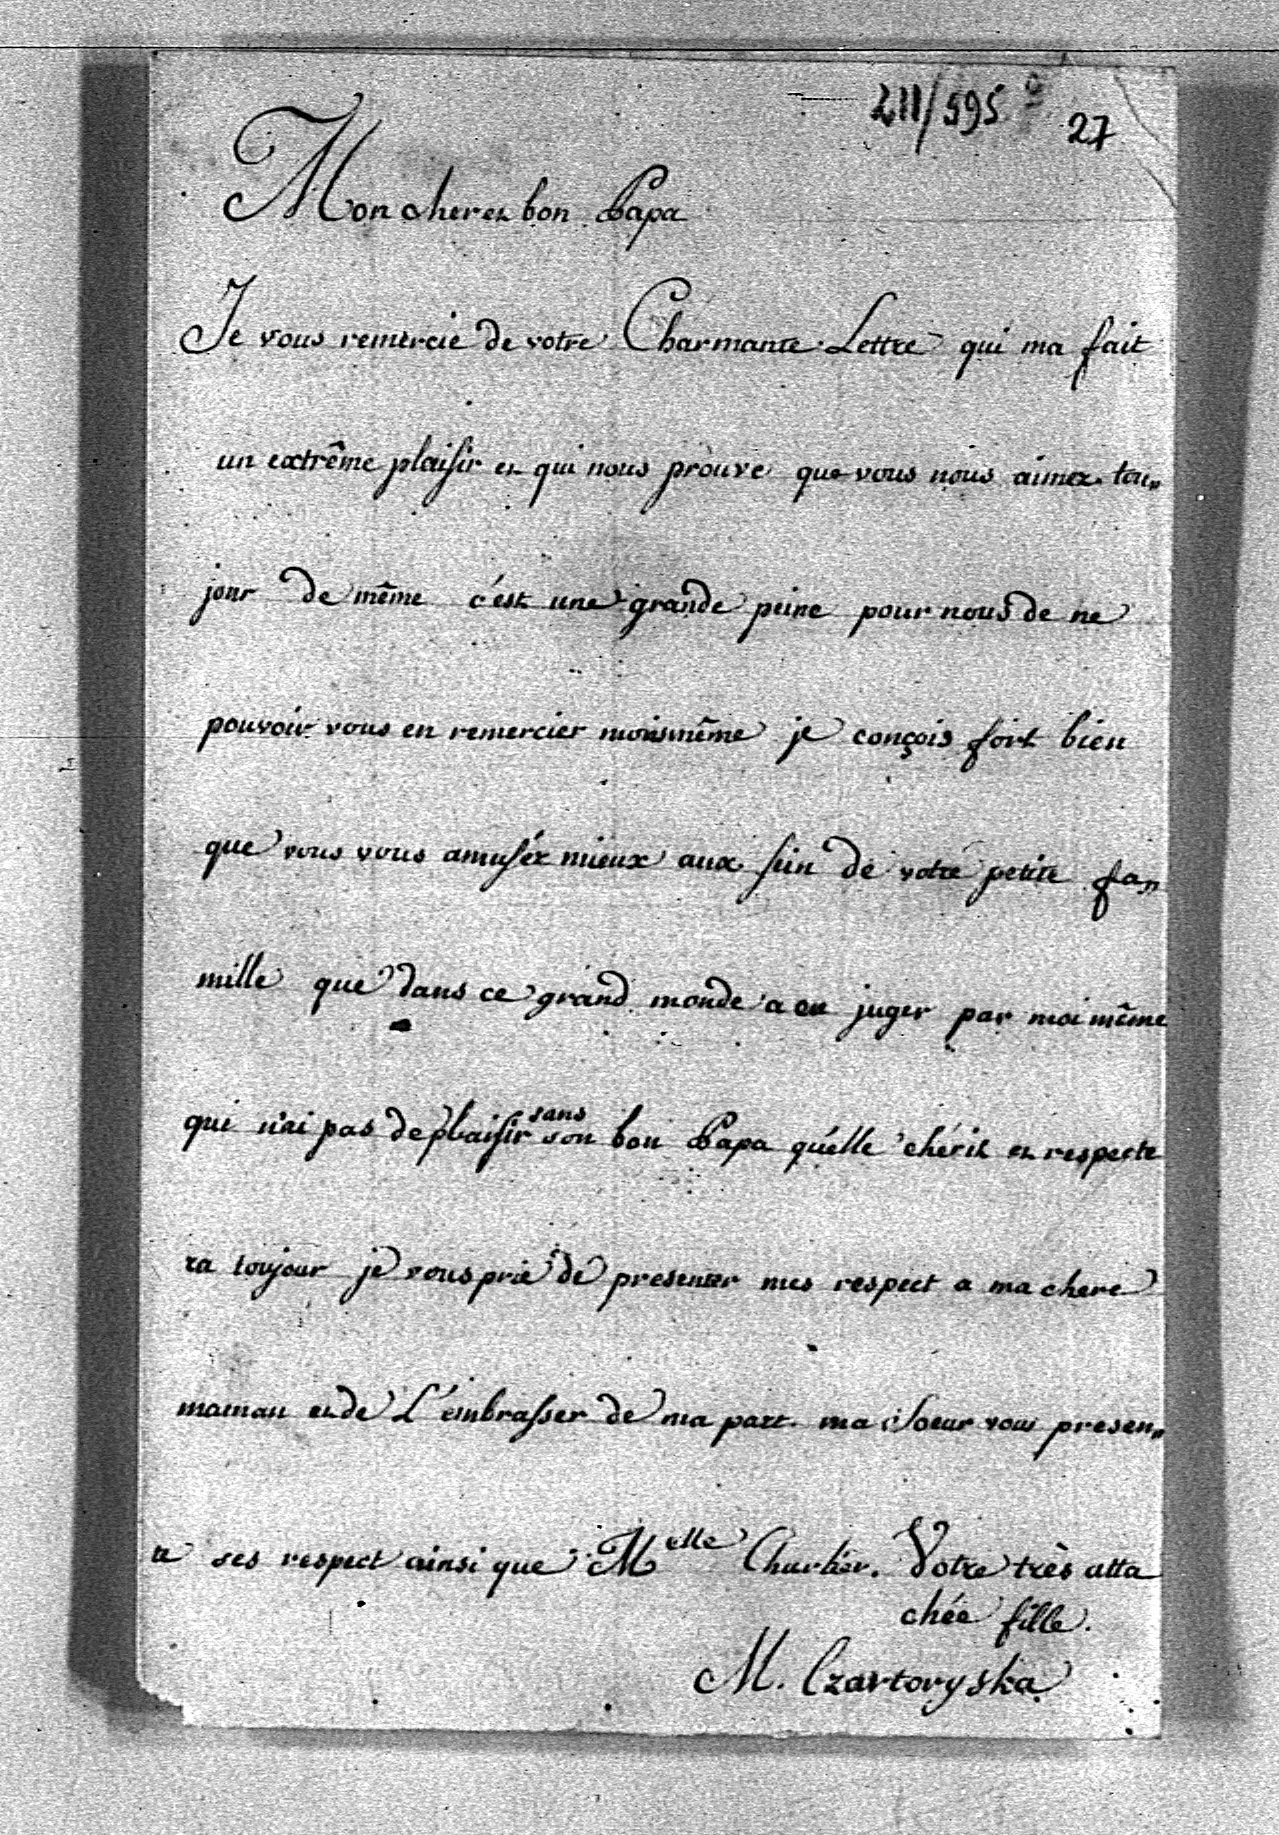 211/595
27
Mon cher et bon Papa
Je vous remercie de votre Charmante Lettre qui ma fait
un extrême plaisir et qui nous prouve que vous nous aimez tou„
jour de même c'est une grande peine pour nous de ne
pouvoir vous en remercier même je conçois fort bien
que vous vous amuséz mieux aux sein de votre petite fa„
mille que dans ce grand monde a en juger par moi même
qui n'ai pas de plaisir sans son bon Papa qu'elle chérit et respecte
ra toujour je vous prie de presenter mes respect a ma chere
maman et de L'embrasser de ma part. ma soeur vous presen„
te ses respect ainsi que Melle Charlier. Votre très atta
chée fille.
M. Czartoryska